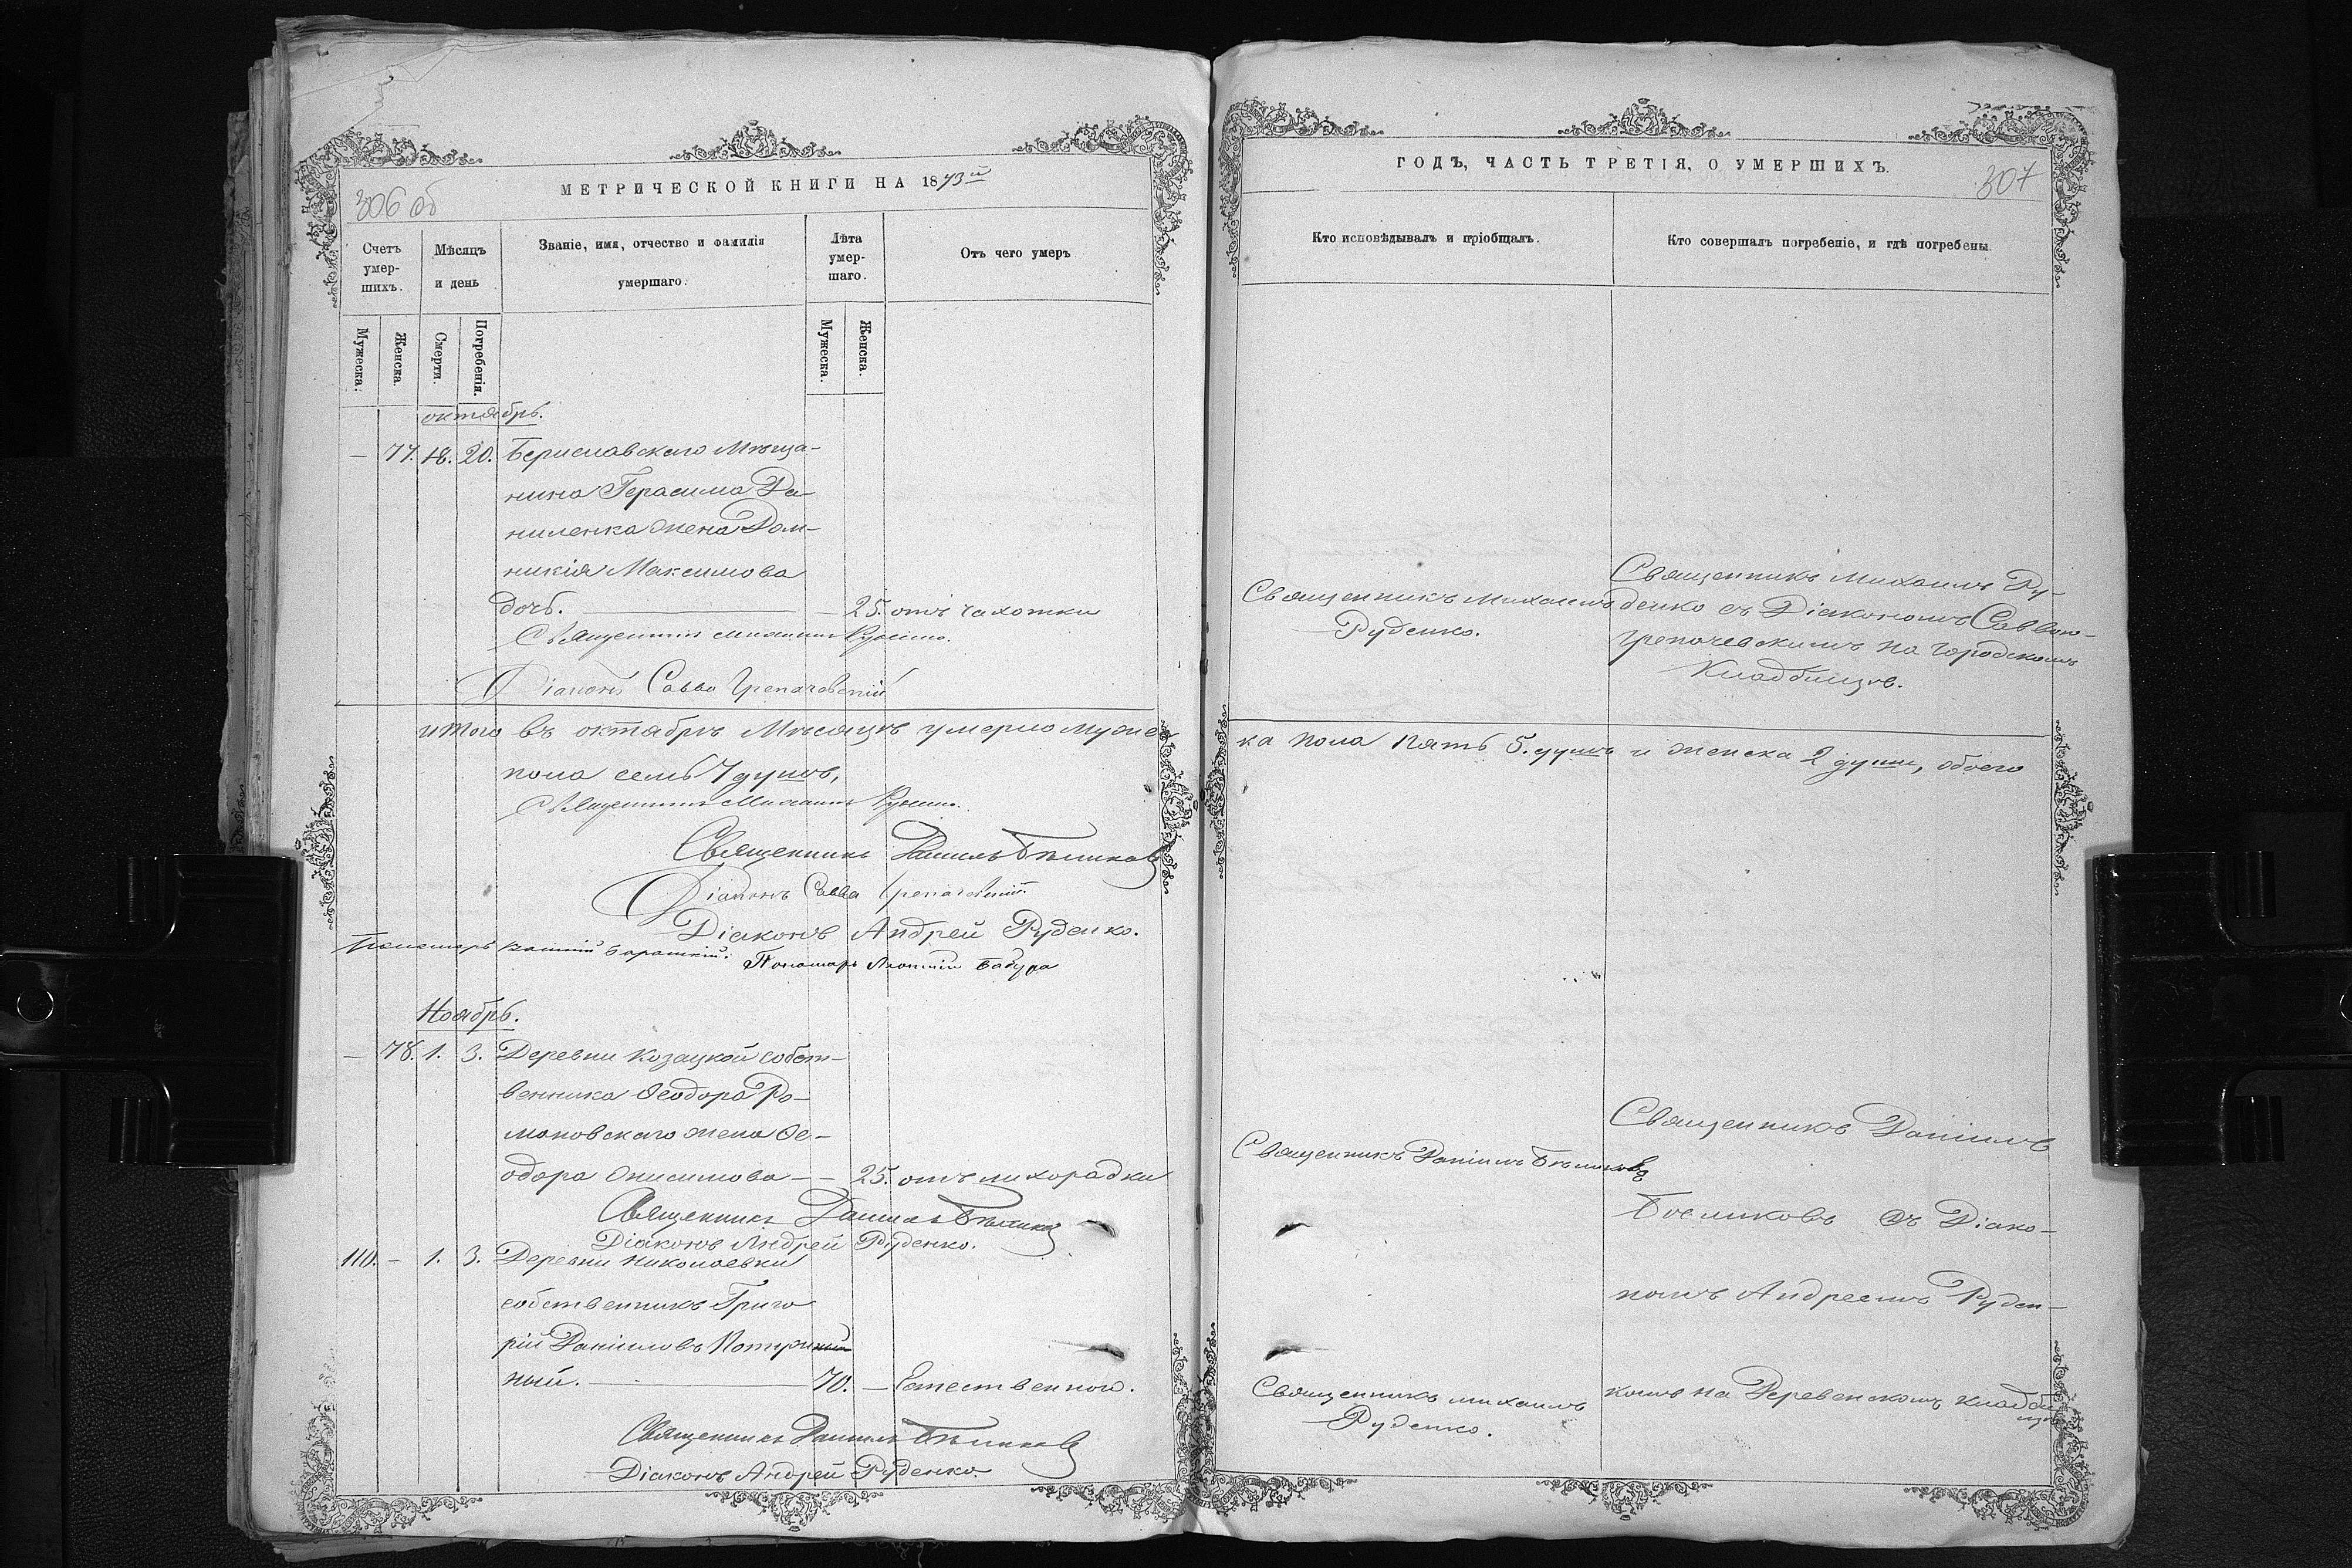 306 об
МЕТРИЧЕСКОЙ КНИГИ НА 1873й
Счетъ умер-шихъ.
Мѣсяцъ и день
Званіе, имя, отчество и фамилія умершаго.
Лѣта умер-шаго.
Отъ чего умеръ
Мужеска.
Женска.
Смерти.
Погребенія.
Мужеска.
Женска.
октябрь.
— 77. 18. 20. Бериславскаго Мѣща-
нина Герасима Да-
ниленка жена Дом-
никія Максимова
дочь. — 25. отъ чахотки
Священникъ Михаилъ Руденко.
Діаконъ Савва
итого въ октябрѣ Мѣсяцѣ умерло мужес
пола семь 7 душъ,
Священникъ Михаилъ Руденко.
Священникъ Даніилъ Бѣликовъ
Діаконъ Савва
Діаконъ Андрей Руденко.
Пономарь
Пономарь Бабура
Ноябрь.
— 78. 1. 3. Деревни Козацкой собст-
венника Феодора Ро-
мановскаго жена Фе-
одора Онисимова — — 25. отъ лихорадки
Священникъ Даніилъ Бѣликовъ
Діаконъ Андрей Руденко.
110. — 1. 3. Деревни Николаевки
собственникъ Григо
рій Даніиловъ
ный. — 70. — Естественною.
Священникъ Даніилъ Бѣликовъ
Діаконъ Андрей Руденко.
ГОДЪ, ЧАСТЬ ТРЕТІЯ, О УМЕРШИХЪ.
307
Кто исповѣдывалъ и пріобщалъ.
Кто совершалъ погребеніе, и гдѣ погребены.
Священникъ Михаилъ
Руденко.
Священникъ Михаилъ Ру-
денко съ Діакономъ Саввою
на городскомъ
Кладбищѣ.
ка пола пять 5. душъ и женска 2 души, обоего
Священникъ Даніилъ Бѣликовъ
Священникъ Даніилъ
Бѣликовъ съ Діако-
номъ Андреемъ Руден-
комъ на Деревенскомъ кладби
щѣ
Священникъ Михаилъ
Руденко.